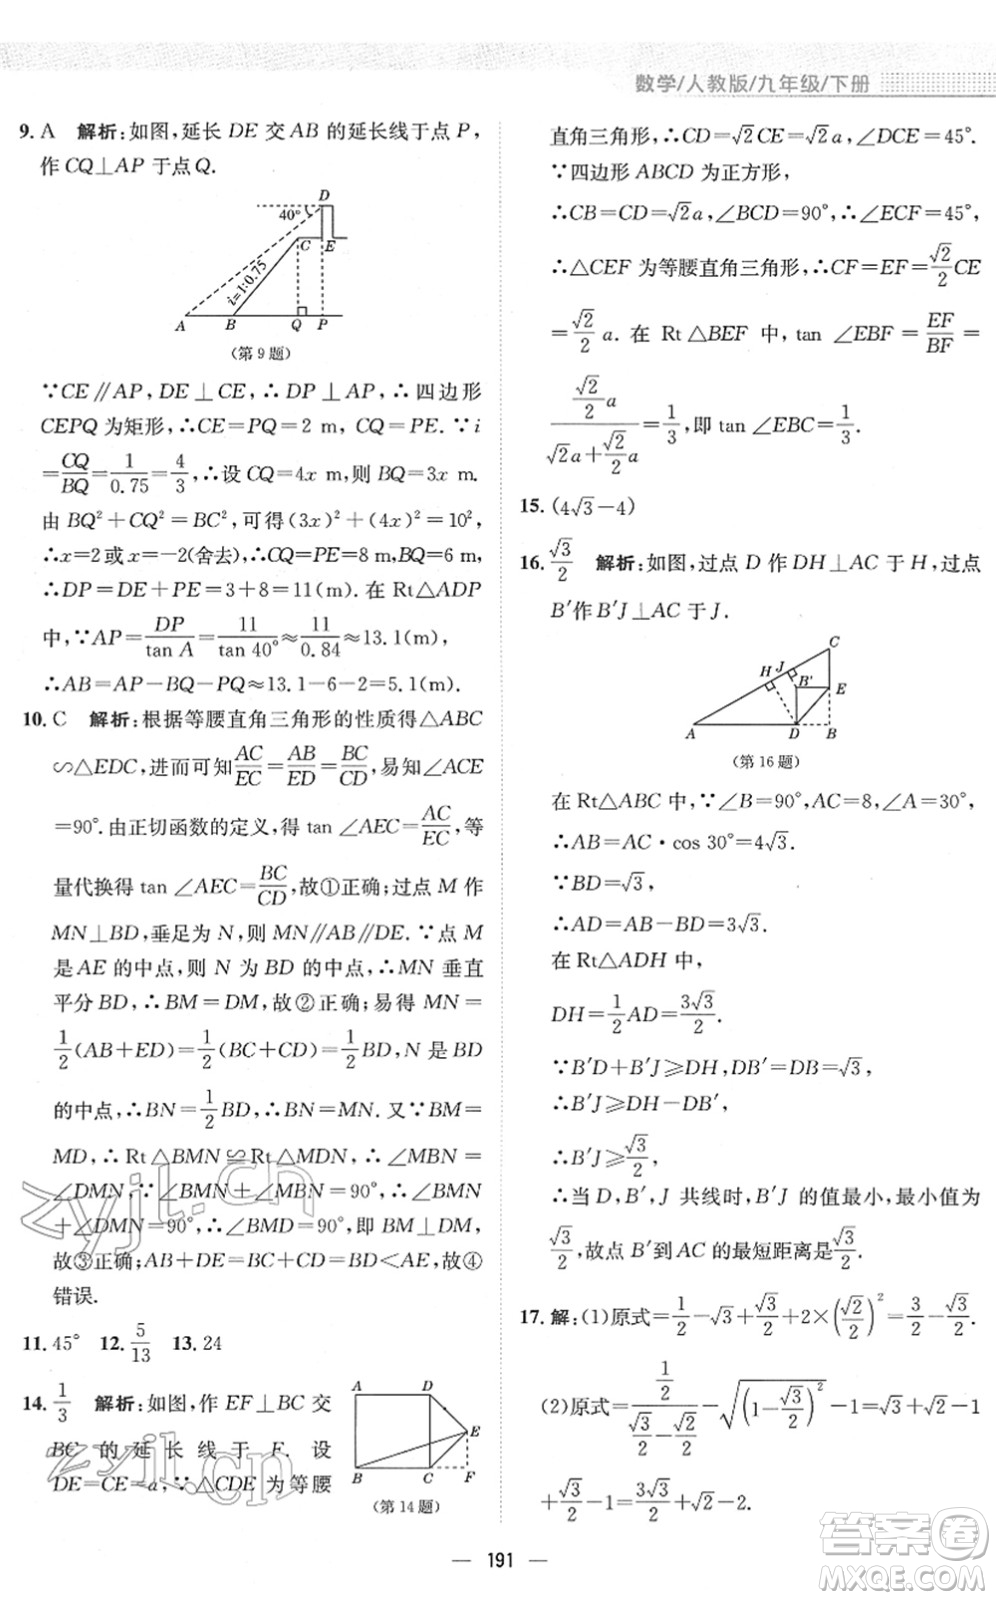 数学/人教版/九年级/下册
9. A 解析:如图,延长 DE 交 AB 的延长线于点 P,
作 CQ⊥AP 于点 Q.
D
40°
C E
i=1:0.75
A B Q P
(第 9 题)
∵CE∥AP,DE⊥CE,∴DP⊥AP,∴四边形
CEPQ 为矩形,∴CE=PQ=2 m,CQ=PE.∵i
=CQ/BQ=1/0.75=4/3,∴设 CQ=4x m,则 BQ=3x m.
由 BQ²+CQ²=BC²,可得(3x)²+(4x)²=10²,
∴x=2或x=-2(舍去),∴CQ=PE=8 m,BQ=6 m,
∴DP=DE+PE=3+8=11(m).在 Rt△ADP
中,∵AP=DP/tan A=11/tan 40°≈11/0.84≈13.1(m),
∴AB=AP-BQ-PQ≈13.1-6-2=5.1(m).
10. C 解析:根据等腰直角三角形的性质得△ABC
∽△EDC,进而可知AC/EC=AB/ED=BC/CD,易知∠ACE
=90°.由正切函数的定义,得 tan ∠AEC=AC/EC,等
量代换得 tan ∠AEC=BC/CD,故①正确;过点 M 作
MN⊥BD,垂足为 N,则 MN∥AB∥DE.∵点 M
是 AE 的中点,则 N 为 BD 的中点,∴MN 垂直
平分 BD,∴BM=DM,故②正确;易得 MN=
1/2(AB+ED)=1/2(BC+CD)=1/2BD,N 是 BD
的中点,∴BN=1/2BD,∴BN=MN.又∵BM=
MD,∴Rt△BMN≌Rt△MDN,∴∠MBN=
∠DMN,∵∠BMN+∠MBN=90°,∴∠BMN
+∠DMN=90°,∴∠BMD=90°,即 BM⊥DM,
故③正确;AB+DE=BC+DC=BD<AE,故④
错误.
11. 45° 12. 5/13 13. 24
14. 1/3 解析:如图,作 EF⊥BC 交
BC 的延长线于 F. 设
DE=CE=a,∵△CDE 为等腰
A D
E
B C F
(第 14 题)
直角三角形,∴CD=√2CE=√2a,∠DCE=45°.
∵四边形 ABCD 为正方形,
∴CB=CD=√2a,∠BCD=90°,∴∠ECF=45°,
∴△CEF 为等腰直角三角形,∴CF=EF=√2/2CE
=√2/2a.在 Rt△BEF 中,tan ∠EBF=EF/BF=
(√2/2a)/(√2a+√2/2a)=1/3,即 tan ∠EBC=1/3.
15. (4√3-4)
16. √3/2 解析:如图,过点 D 作 DH⊥AC 于 H,过点
B′作 B′J⊥AC 于 J.
C
H J
B′ E
A D B
(第 16 题)
在 Rt△ABC 中,∵∠B=90°,AC=8,∠A=30°,
∴AB=AC·cos 30°=4√3.
∵BD=√3,
∴AD=AB-BD=3√3.
在 Rt△ADH 中,
DH=1/2AD=3√3/2.
∵B′D+B′J≥DH,DB′=DB=√3,
∴B′J≥DH-DB′,
∴B′J≥√3/2,
∴当 D,B′,J 共线时,B′J 的值最小,最小值为
√3/2,故点 B′到 AC 的最短距离是√3/2.
17. 解:(1)原式=1/2-√3+√3/2+2×(√2/2)²=3/2-√3/2.
(2)原式=(1/2)/(√3/2-√2/2)-√((1-√3/2)²)-1=√3+√2-1
+√3/2-1=3√3/2+√2-2.
— 191 —
zyjl.cn
zyjl.cn
答案卷
MXQE.COM